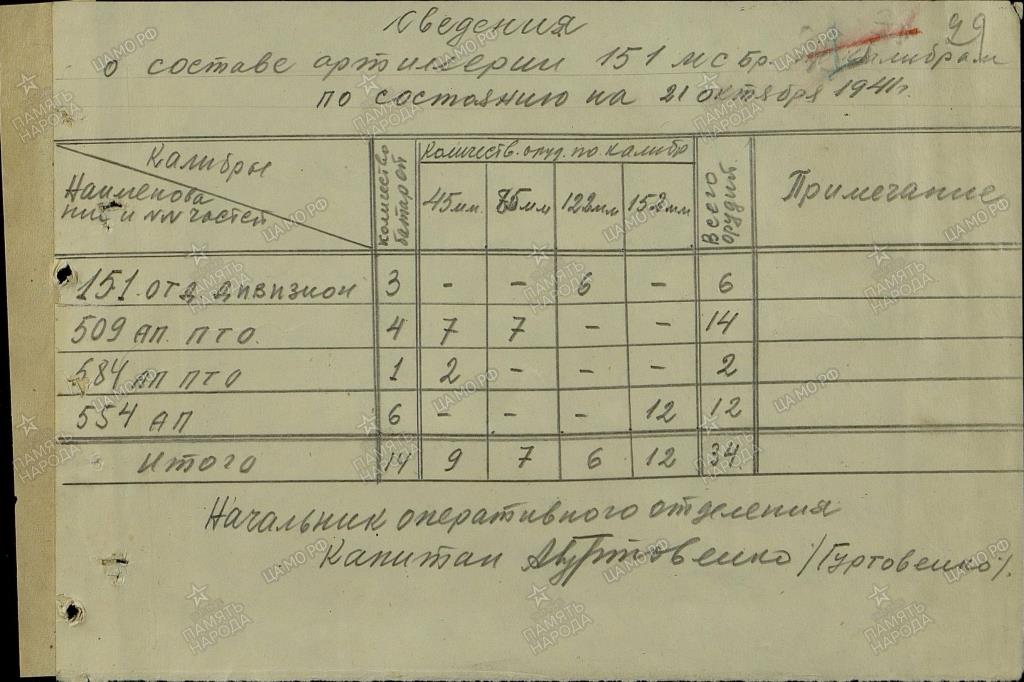 Сведения
29
о составе артиллерии 151 мсбр. калибрам
по состоянию на 21 октября 1941г.
Калибры
Наименова
ние и №№ частей
количество батарей
Количеств. оруд. по калибр
45мм. 85мм 122мм 152мм
Всего орудий.
Примечание
151. отд дивизион 3 - - 6 - 6
509 АП. ПТО. 4 7 7 - - 14
584 АП ПТО 1 2 - - - 2
554 АП 6 - - - 12 12
Итого 14 9 7 6 12 34
Начальник оперативного отделения
Капитан Гуртовенко /Гуртовенко/.
ЦАМО.РФ
ПАМЯТЬ НАРОДА